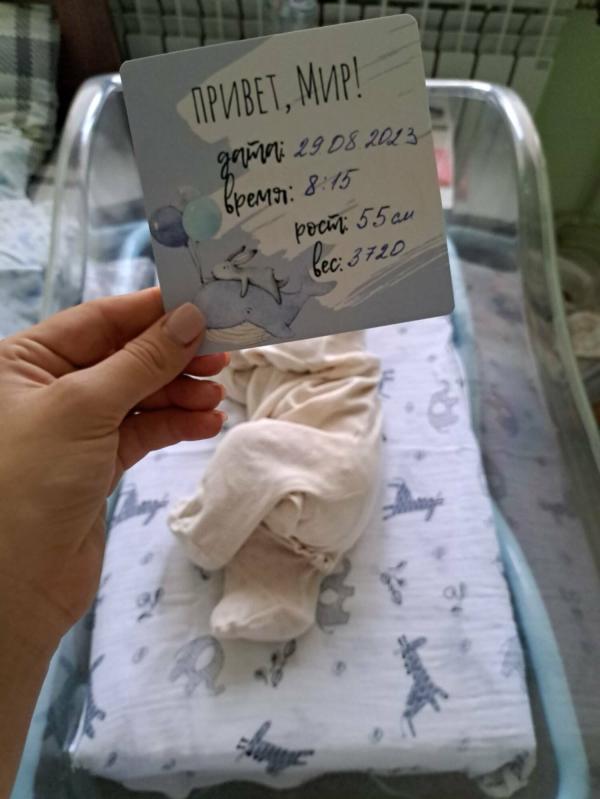 ПРИВЕТ, МИР!
дата: 29 08 2023
время: 8:15
рост: 55 см
вес: 3720